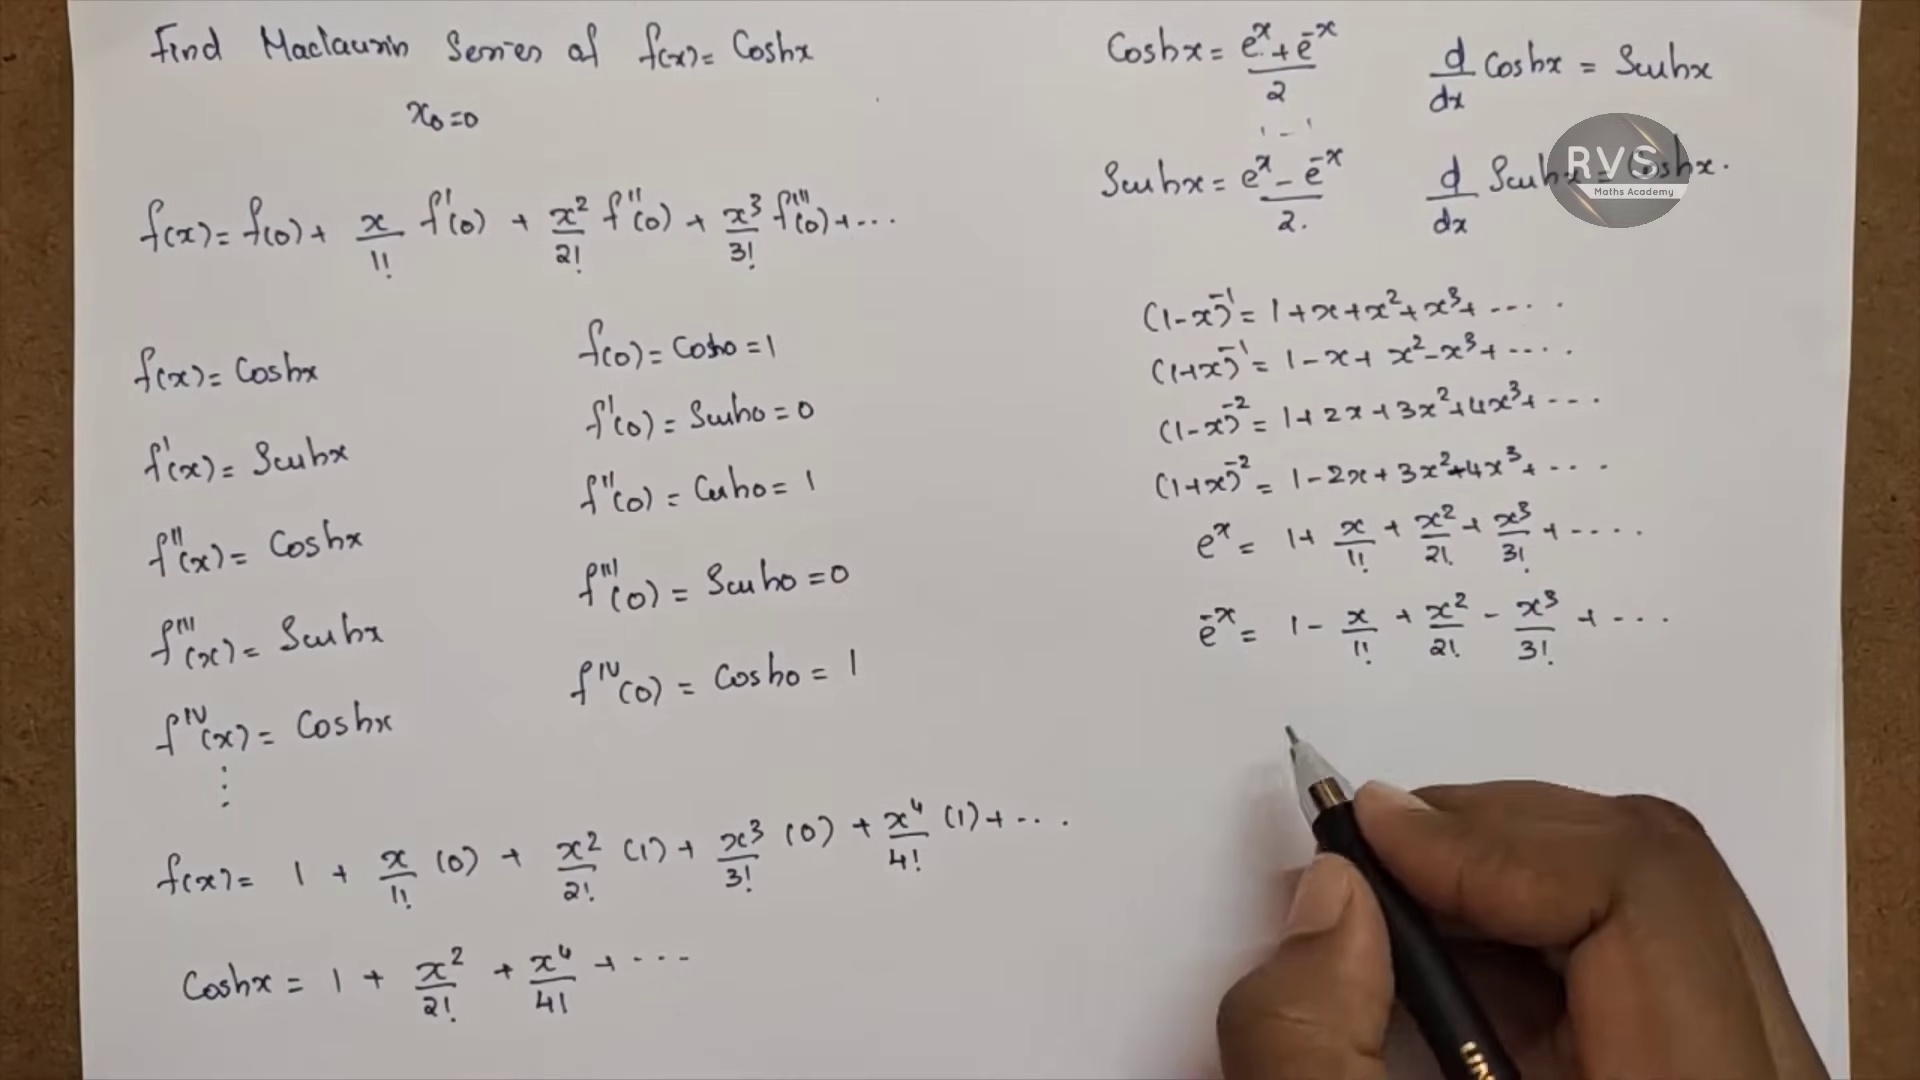 Find Maclaurin Series of f(x) = Coshx
x₀=0
f(x) = f(0) + x/1! f'(0) + x²/2! f''(0) + x³/3! f'''(0) + ...
f(x) = Coshx
f'(x) = Sinhx
f''(x) = Coshx
f'''(x) = Sinhx
f^IV(x) = Coshx
⋮
f(0) = Cosh0 = 1
f'(0) = Sinh0 = 0
f''(0) = Cosh0 = 1
f'''(0) = Sinh0 = 0
f^IV(0) = Cosh0 = 1
f(x) = 1 + x/1! (0) + x²/2! (1) + x³/3! (0) + x⁴/4! (1) + ...
Coshx = 1 + x²/2! + x⁴/4! + ...
Coshx = (e^x + e^-x)/2
d/dx Coshx = Sinhx
Sinhx = (e^x - e^-x)/2.
d/dx Sinhx = Coshx.
RVS
Maths Academy
(1-x)^-1 = 1+x+x²+x³+ ....
(1+x)^-1 = 1-x+x²-x³+ ....
(1-x)^-2 = 1+2x+3x²+4x³+ ...
(1+x)^-2 = 1-2x+3x²-4x³+ ...
e^x = 1+ x/1! + x²/2! + x³/3! + ....
e^-x = 1 - x/1! + x²/2! - x³/3! + ....
UN